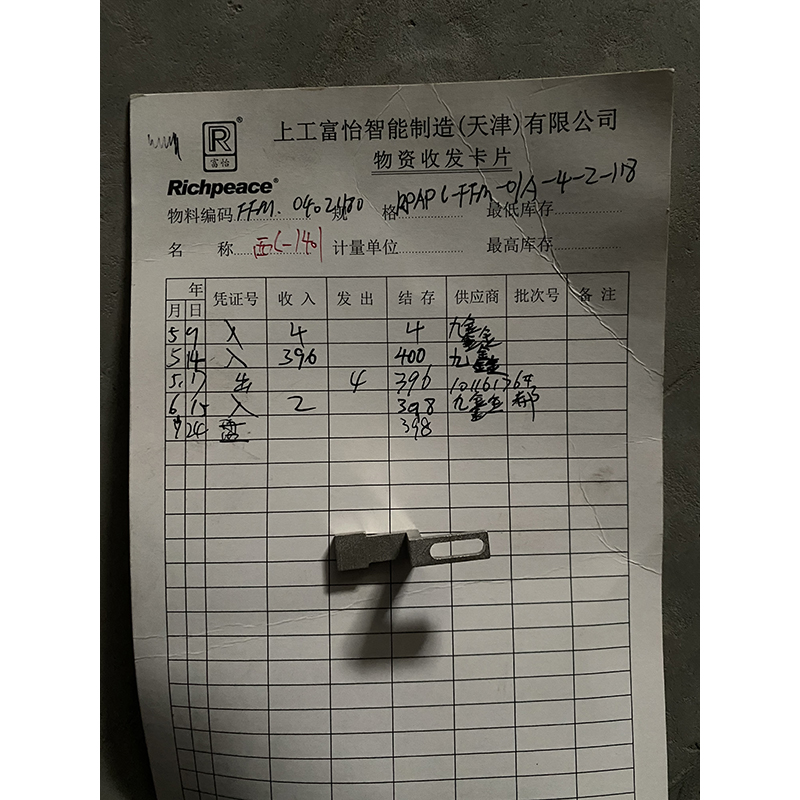 上工富怡智能制造(天津)有限公司
R®
富怡
物资收发卡片
Richpeace®
物料编码 FFM.0402180 规格 RPAPL-FFM-01A-4-2-118 最低库存
名称 西(-140) 计量单位 最高库存
年 凭证号 收入 发出 结存 供应商 批次号 备注
月 日
5 9 入 4 4 九鑫
5 14 入 396 400 九鑫
5.17 出 4 396
6 15 入 2 398 九鑫
9 24 盘 398